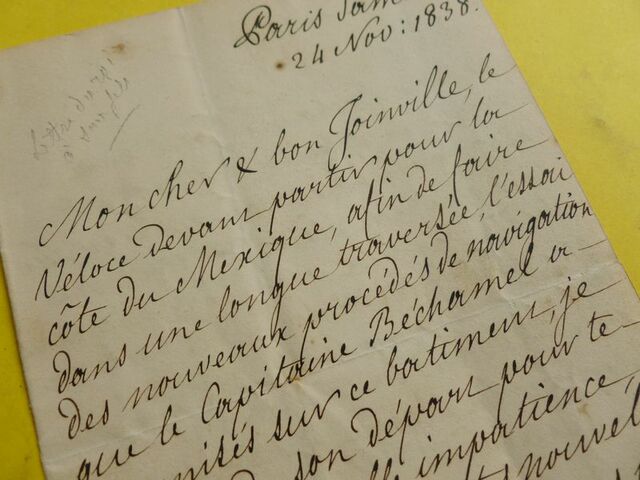 Paris Sam
24 Nov: 1838.
Lettre d'un
à son fils
Mon cher & bon Joinville, le
Véloce devant partir pour la
côte du Mexique, afin de faire
dans une longue traversée, l'essai
des nouveaux procédés de navigation
que le Capitaine Béchamel a-
nisés sur ce batiment, je
son départ pour te-
lle impatience,
nouvel